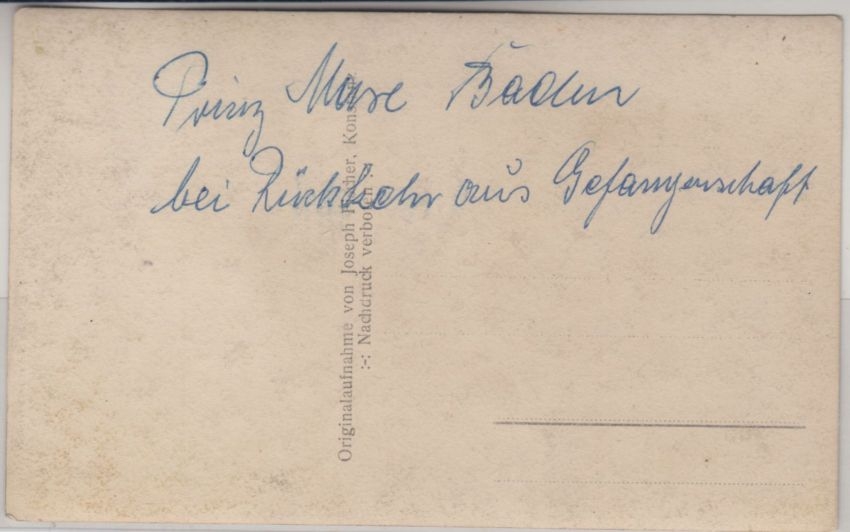 Prinz Maxe Baden
bei Rückkehr aus Gefangenschaft
Originalaufnahme von Joseph Fischer, Konstanz
:-: Nachdruck verboten :-: